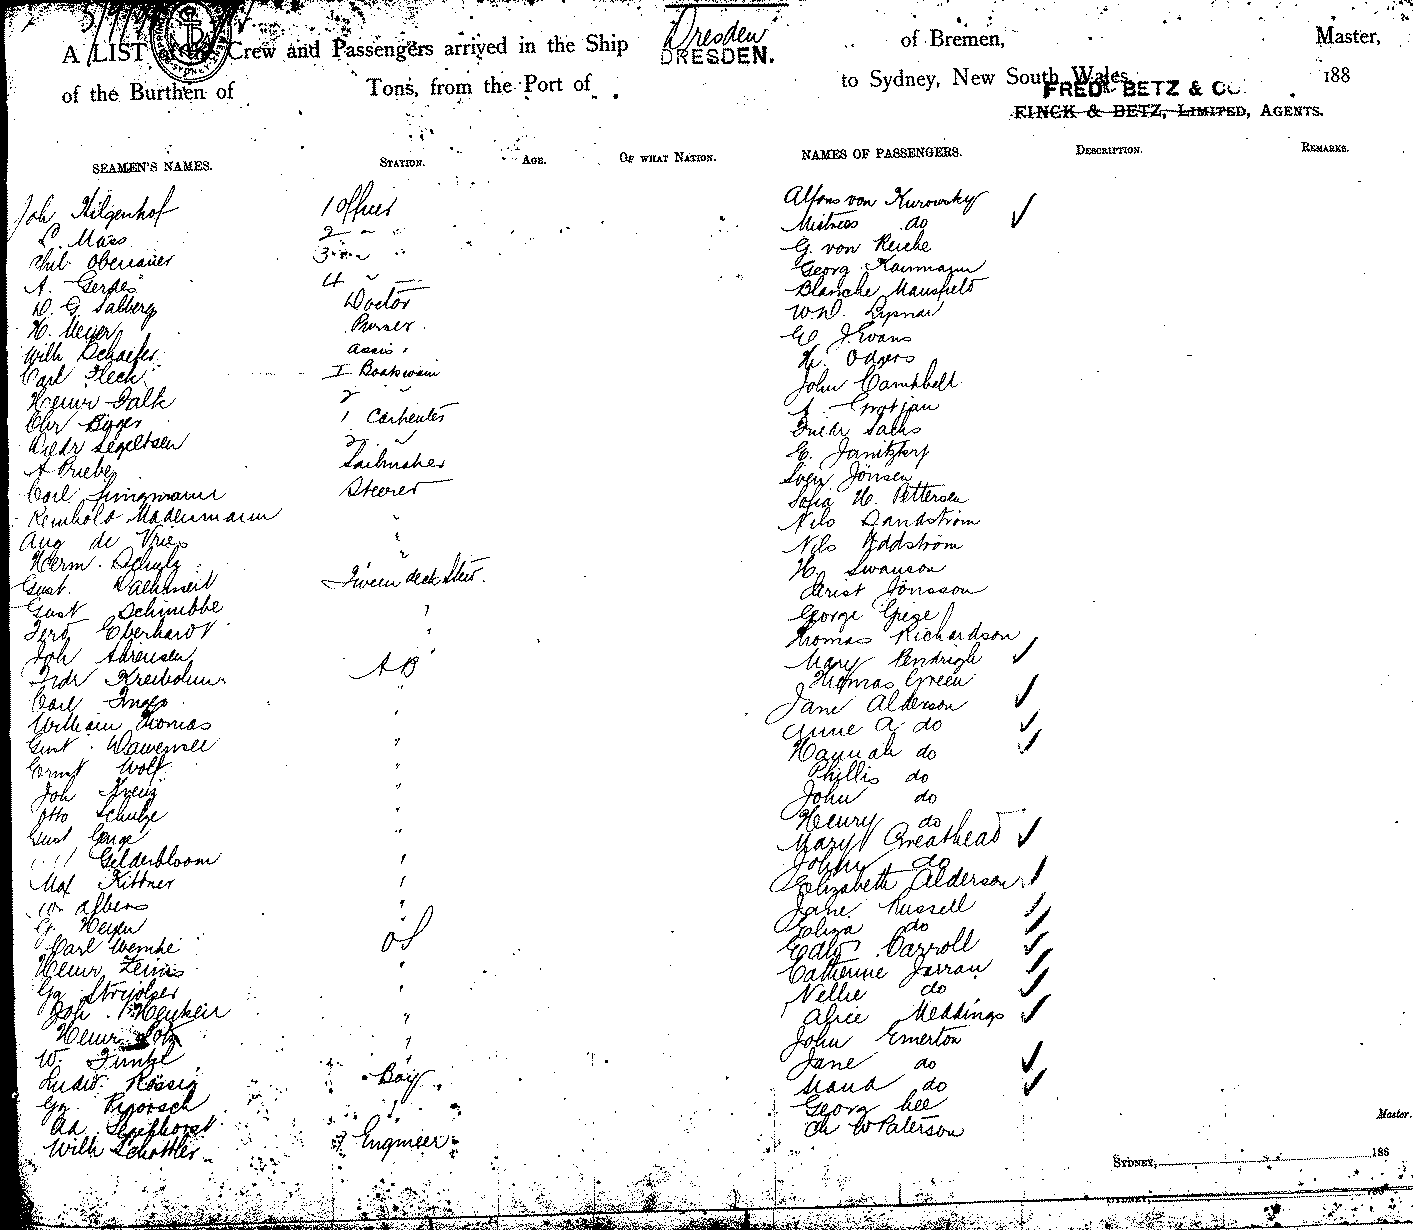 Dresden
A LIST Crew and Passengers arrived in the Ship DRESDEN. of Bremen, Master,
of the Burthen of Tons, from the Port of to Sydney, New South Wales 188
FREDK BETZ & CO.
FINCK & BETZ, LIMITED, AGENTS.
SEAMEN'S NAMES. STATION. AGE. OF WHAT NATION. NAMES OF PASSENGERS. DESCRIPTION. REMARKS.
Joh Hilgenhof 1 Officer Alfons von Kurowsky ✓
Mass 2 " " Mistress do
Phil Obenauer 3 " " G. von Reiche
A. Gerdes 4 " Georg
D. G. Salberg Doctor Blanche Mansfield
H. Meyer Purser W.D.
Wilh Schaefer Assis. J. Evans
Carl Fleck I Boatswain H. Odgers
Heinr Falk 2 " John Campbell
Chr 1 Carpenter A. Grotjan
Diedr Segeltsen 2 " Friedr Sachs
A Priebe Sailmaker E.
Carl Jungmann Steerer Sven Jönsen
Reinhold " Sofia H. Pettersen
Aug de Vries " Nils Sandström
Herm. Schulz " Nils Eddström
Gust. Tween deck Stew. H. Swanson
Gust Schimbke " Christ Jönsson
Ferd Eberhardt " George
Joh Sörensen AB Thomas Richardson
Fidr " Mary Pendrigh ✓
Carl " Thomas Green
William Thomas " Jane Alderson ✓
Gust " Anne A. do ✓
Ernst Wolf " Hannah do ✓
Joh " Phillis do
Otto Schulze " John do
Gust " Henry do
" Gelderbloom " Mary Greathead ✓
Max Kittner " John do
W. Albers " Elizabeth Alderson ✓
G. Meyer OS Jane Russell ✓
Carl Wemke " Eliza do ✓
Heinr " Edw. Carroll ✓
Gg " Catherine Jarran ✓
Joh " Nellie do ✓
Heinr " Alice Meddings ✓
W. " John Emerton
Ludw. Rossig Boy Jane do ✓
Gg " Maud do ✓
Ad. " Georg Lee
Wilh Schottler Engineer Ch W Paterson
Master.
SYDNEY, 188
SYDNEY,